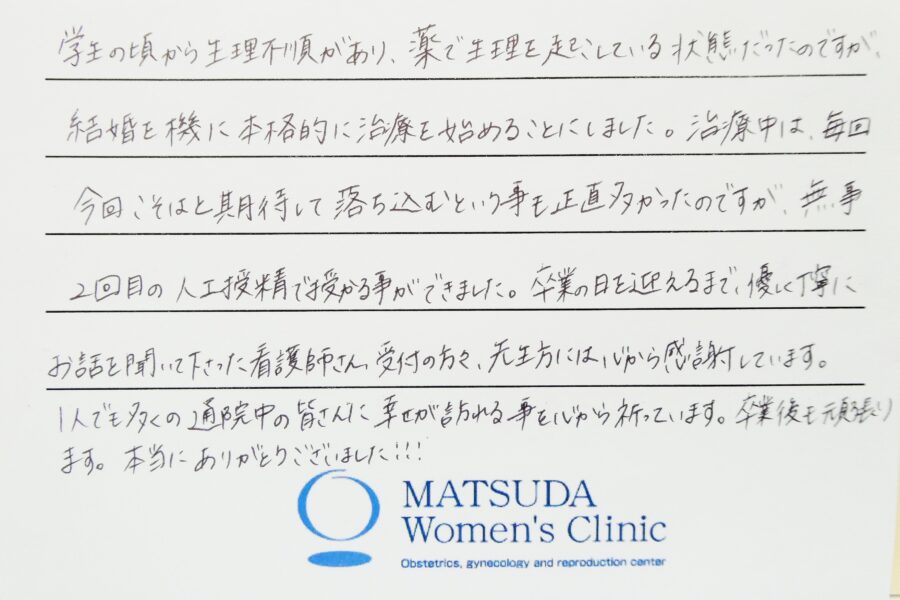 学生の頃から生理不順があり、薬で生理を起こしている状態だったのですが、
結婚を機に本格的に治療を始めることにしました。治療中は、毎回
今回こそはと期待して落ち込むという事も正直多かったのですが、無事
2回目の人工授精で授かる事ができました。卒業の日を迎えるまで、優しく丁寧に
お話を聞いて下さった看護師さん、受付の方々、先生方には心から感謝しています。
1人でも多くの通院中の皆さんに幸せが訪れる事を心から祈っています。卒業後も頑張り
ます。本当にありがとうございました!!!
MATSUDA
Women's Clinic
Obstetrics, gynecology and reproduction center